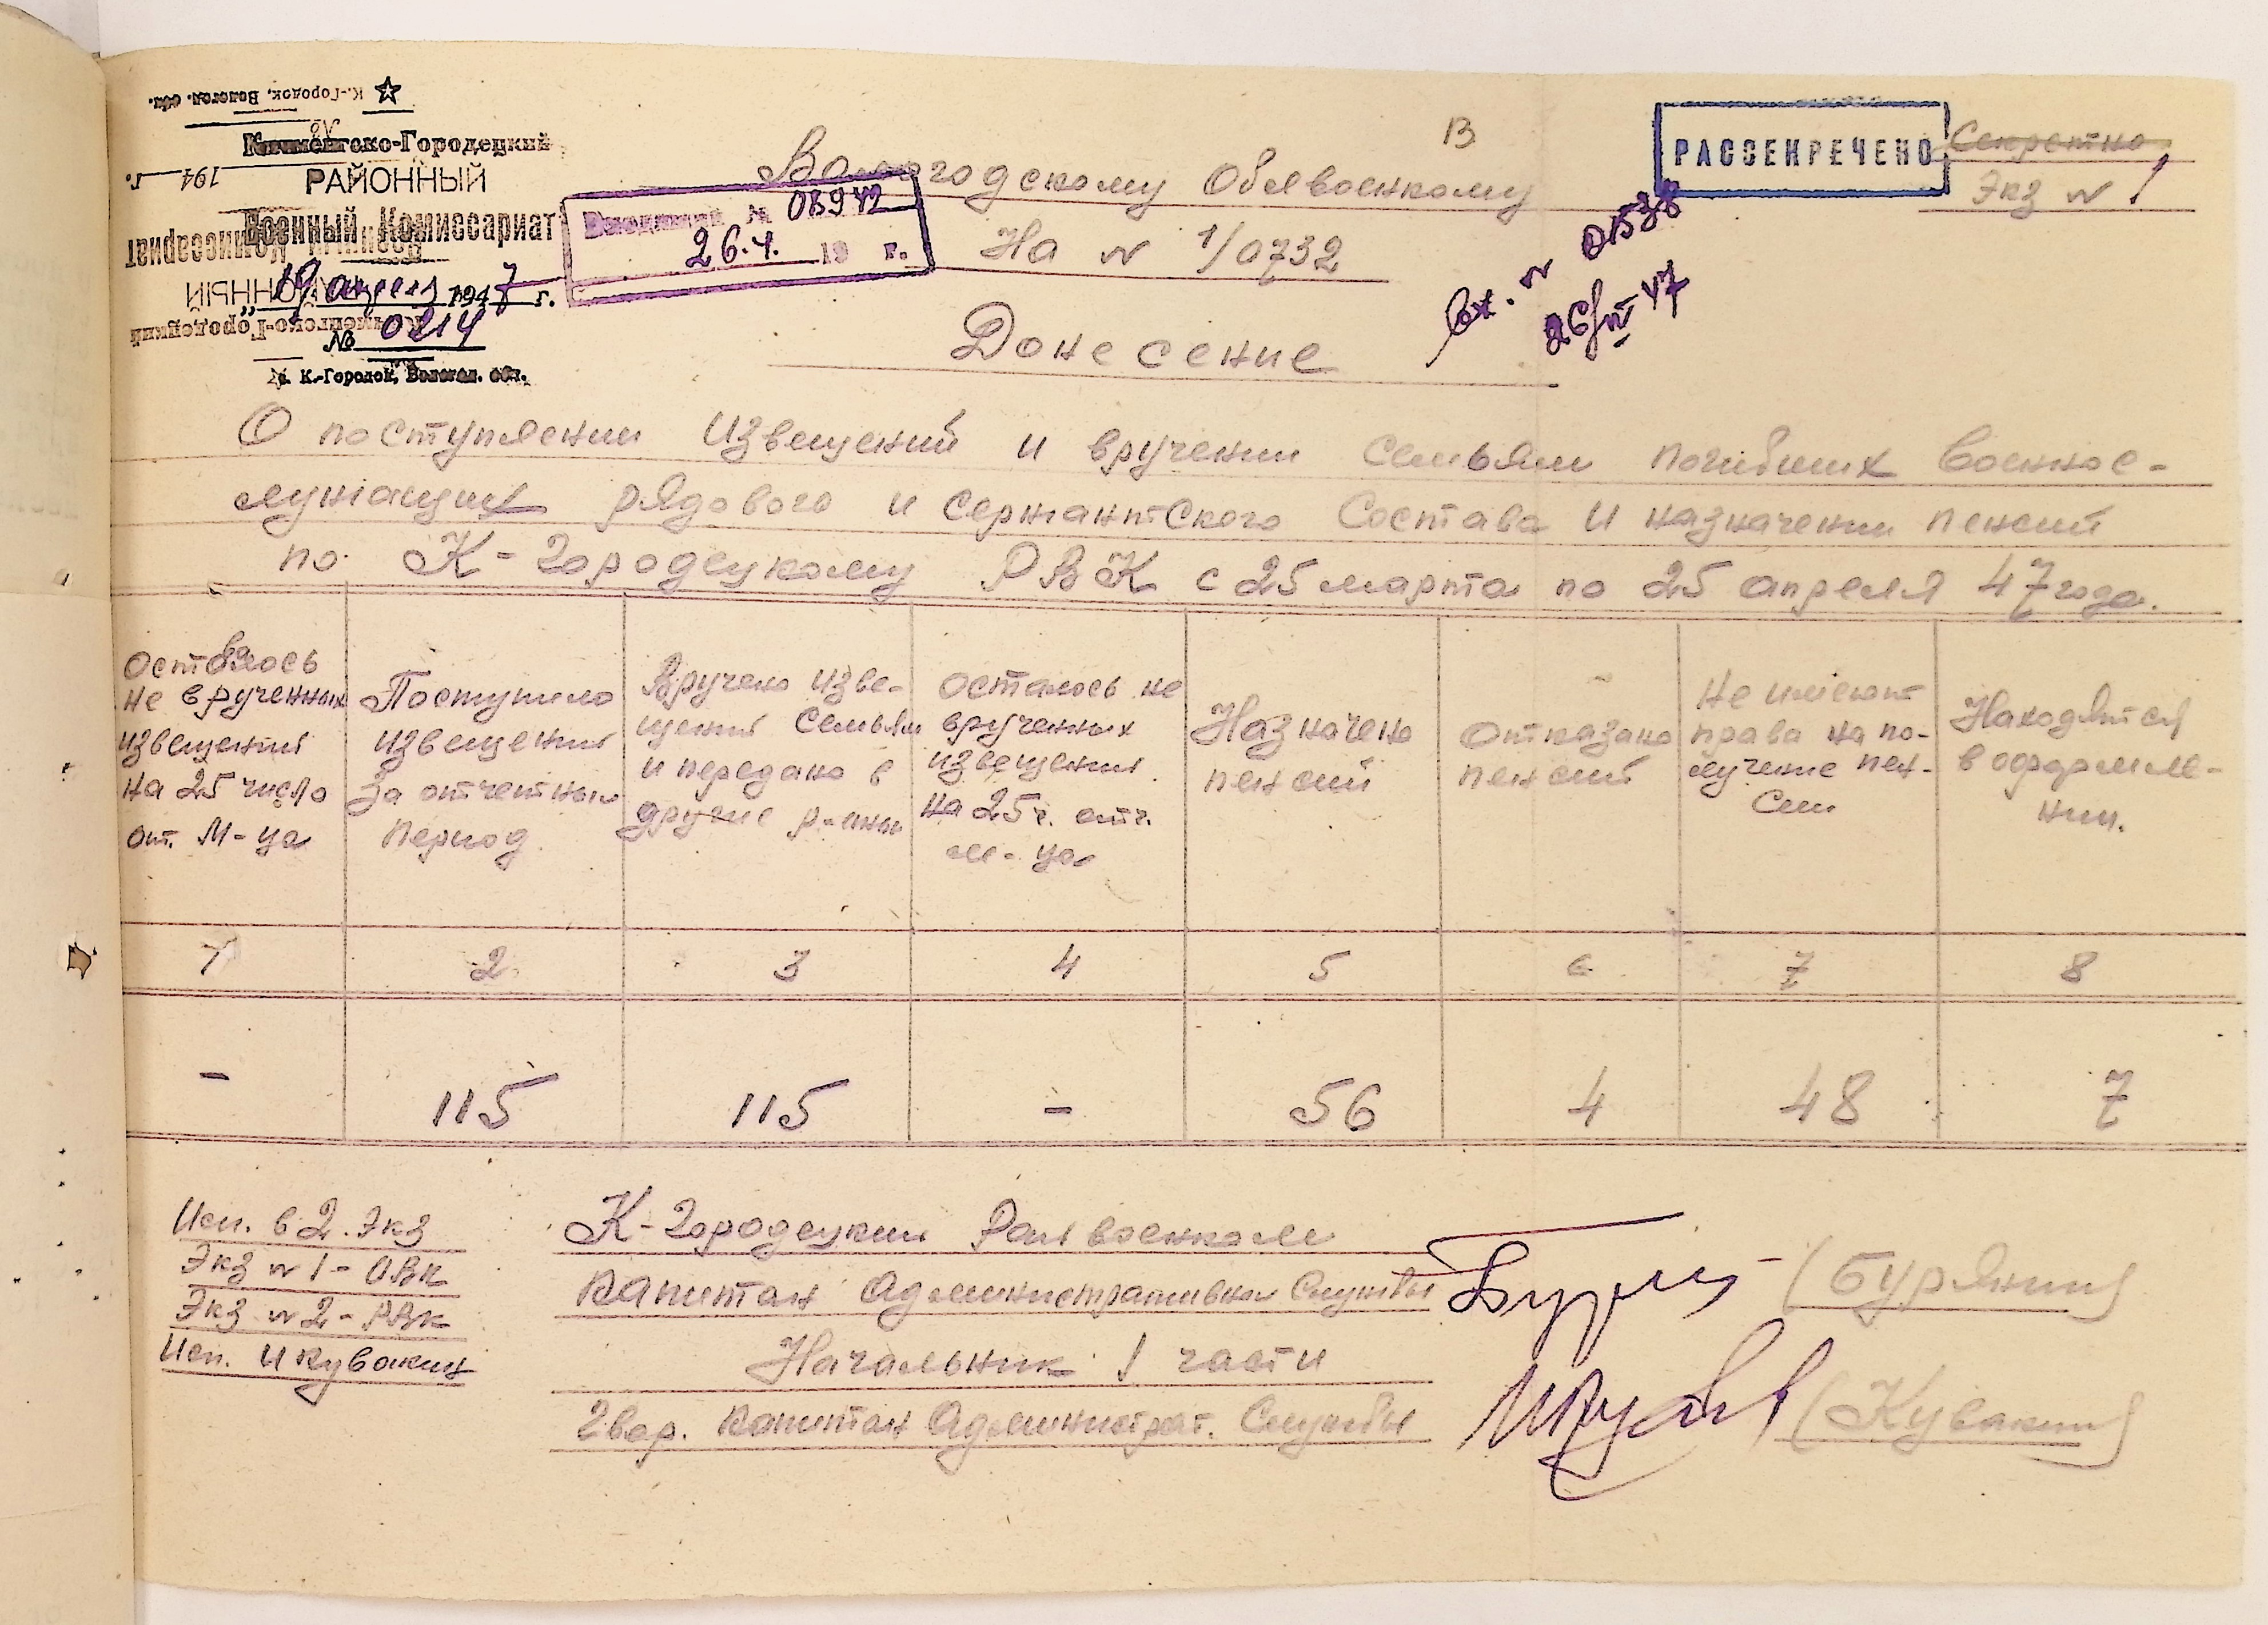 К.-Городок, Вологод. обл.
№
194 г.
Кичменгско-Городецкий
РАЙОННЫЙ
Военный Комиссариат
19 апреля 1947 г.
№ 0214
с. К.-Городок, Вологод. обл.
13
РАССЕКРЕЧЕНО
Секретно
Экз № 1
Вологодскому Облвоенкому
Входящий №
26.4. 19 г.
На № 1/0732
Вх. № 0538
26/IV 47
Донесение
О поступлении Извещений и вручении Семьям погибших Военнос-
лужащих рядового и Сержантского Состава и назначении пенсий
по К-Городецкому РВК с 25 марта по 25 апреля 47 года.
Оставалось
не врученных
извещения
на 25 число
от. М-ца
Поступило
извещения
За отчетный
период
Вручено изве-
щения Семьям
и передано в
другие р-аны
осталось не
врученных
извещения
на 25 ч. отч.
м-ца
Назначено
пенсий
Отказано
пенсий
Не имеют
права на по-
лучение пен-
сии
Находятся
в оформле-
нии.
1 2 3 4 5 6 7 8
- 115 115 - 56 4 48 7
Исп. в 2. Экз
Экз № 1 - ОВК
Экз № 2 - РВК
Исп. и Кувакин
К-Городецкий Райвоенком
Капитан Административной Службы (Бурянин)
Начальник 1 части
Гвар. Капитан Администрат. Службы (Кувакин)